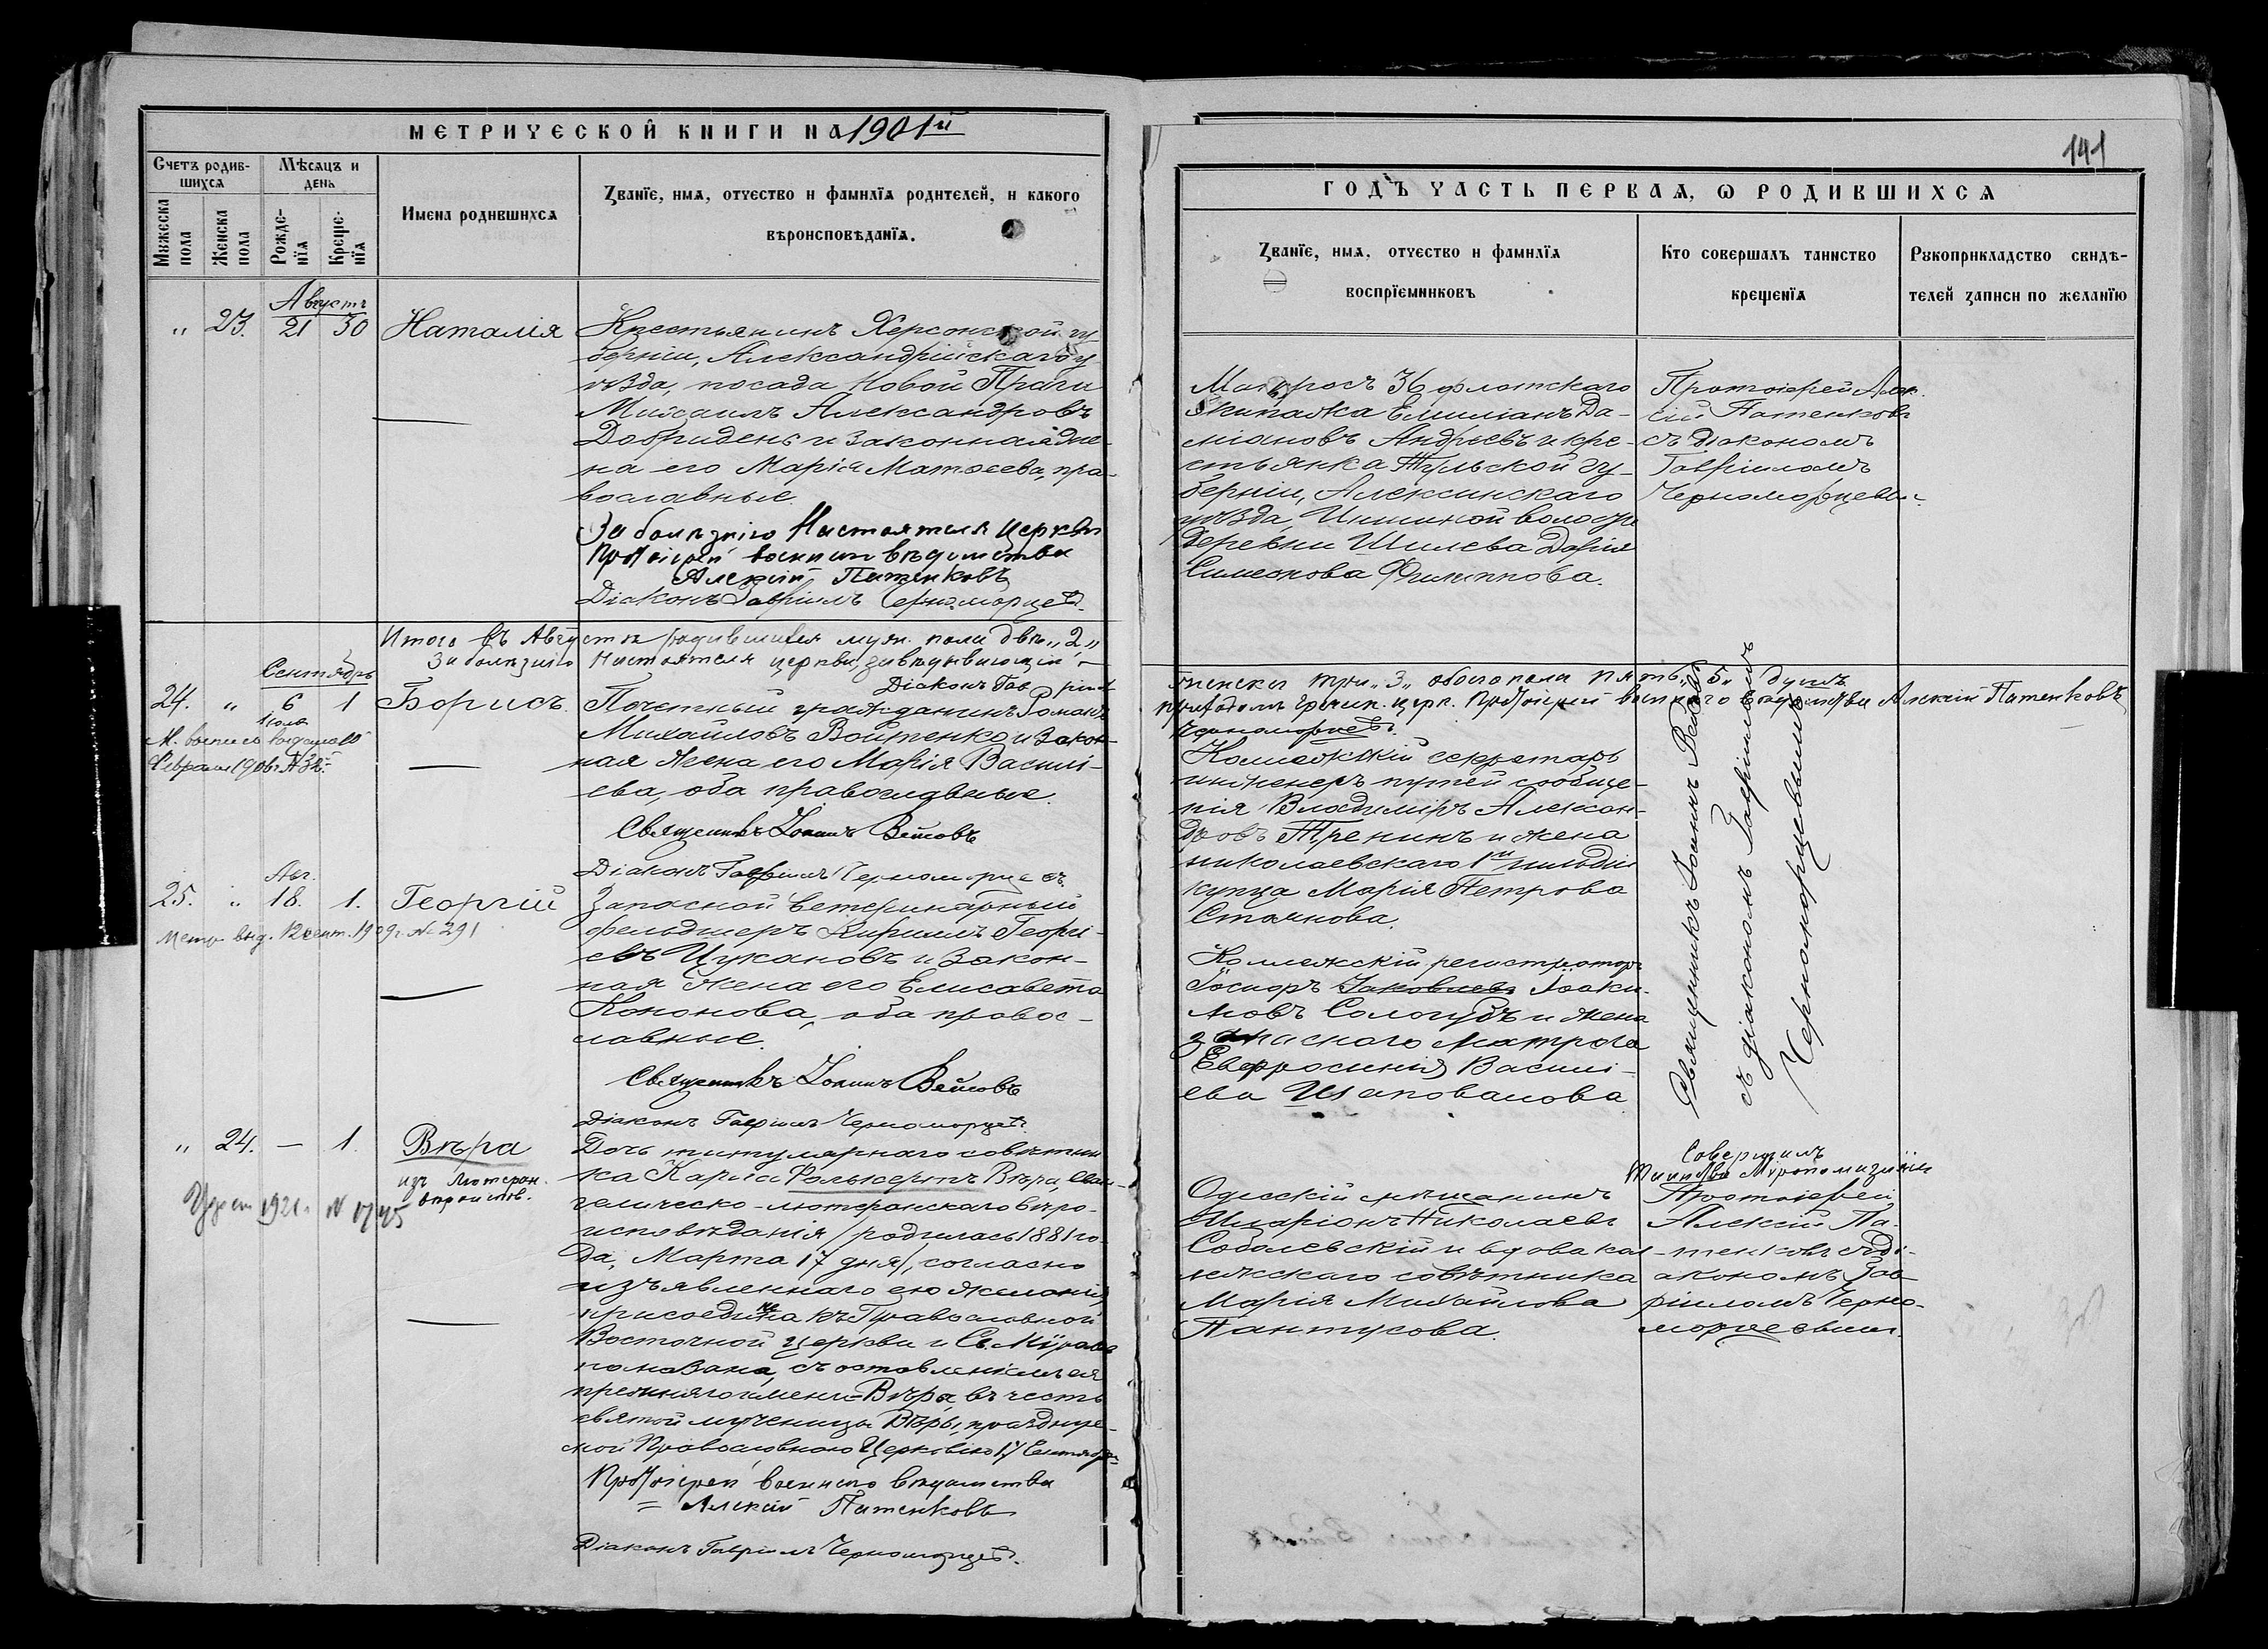 МЕТРИЧЕСКОЙ КНИГИ НА 1901й
Счетъ родив-
шихся
Мѣсяцъ и
день
Мужеска
пола
Женска
пола
Рожде-
нїя
Креще-
нїя
Имена родившихся
Званїе, имя, отчество и фамилїя родителей, и какого
вѣроисповѣданїя.
Августъ
" 23. 21 30 Наталія
Крестьянинъ Херсонской гу-
берніи, Александрійскаго у-
ѣзда, посада Новой Праги
Михаилъ Александровъ
Добридень и законная же-
на его Марія Матѳеева, пра-
вославные.
За болѣзнію Настоятеля церкви
Протоіерей военнаго вѣдомства
Алексій Патенковъ
Діаконъ Гавріилъ Черноморцевъ.
Итого въ Августѣ родившихся муж. пола два "2"
За болѣзнію Настоятеля церкви, завѣдывающій
Діаконъ Гавріилъ
Сентябрь
24. " 6 1 Борисъ.
Іюля
М. выпись выдана 10
Февраля 1906 г. № 32.
Почетный гражданинъ Романъ
Михайловъ Войтенко и закон-
ная жена его Марія Василі-
ева, оба православные.
Священникъ Іоаннъ Вейсовъ
Діаконъ Гавріилъ Черноморцевъ
Авг.
25. " 18. 1. Георгій
Метр. выд. 12 сент. 1909 г. № 291
Запасной ветеринарный
фельдшеръ Кириллъ Георгі-
евъ Цукановъ и закон-
ная жена его Елисавета
Кононова, оба правос-
лавные.
Священникъ Іоаннъ Вейсовъ
Діаконъ Гавріилъ Черноморцевъ.
" 24. — 1. Вѣра
изъ лютеран.
вѣроиспов.
1921 г. №
Дочь титулярнаго совѣтни
ка Карла Фолькертъ Вѣра, еван-
гелическо-лютеранскаго вѣро-
исповѣданія /родилась 1881 го-
да, Марта 17 дня/, согласно
изъявленнаго ею желанія,
присоединена къ Православной
Восточной церкви и Св. Мѵромъ
помазана, съ оставленіемъ ея
прежняго имени = Вѣра, въ честь
святой мученицы Вѣры, праздну-
мой Православною Церковію 17 Сентября
Протоіерей военнаго вѣдомства
= Алексій Патенковъ
Діаконъ Гавріилъ Черноморцевъ.
141
ГОДЪ ЧАСТЬ ПЕРВАЯ, Ѡ РОДИВШИХСЯ
Званїе, имя, отчество и фамилїя
воспрїемниковъ
Кто совершалъ таинство
крещенїя
Рукоприкладство свидѣ-
телей записи по желанїю
Матросъ 36 флотскаго
экипажа Емиліанъ Да-
міановъ Андреевъ и кре-
стьянка Тульской гу-
берніи, Алексинскаго
уѣзда, волости
деревни Шилева Дарія
Симеонова Филиппова.
Протоіерей Алек-
сій Патенковъ
съ діакономъ
Гавріиломъ
Черноморцевы-
женска три "3" обоего пола пять "5" душъ
приходомъ Гречик. церк. Протоіерей военнаго вѣдомства Алексій Патенковъ
Черноморцевъ.
Коллежскій секретарь
инженеръ путей сообще-
нія Владиміръ Алексан-
дровъ Тренинъ и жена
николаевскаго 1й гильдіи
купца Марія Петрова
Стоянова.
Коллежскій регистраторъ
Іосифъ Яковлевъ Іоаки-
мовъ Сологубъ и жена
запаснаго матроса
Евфросинія Василі-
ева Шаповалова
Священникъ Іоаннъ Вейсовъ
съ діакономъ Гавріиломъ
Черноморцевымъ
Одесскій мѣщанинъ
Иларіонъ Николаевъ
Соболевскій и вдова кол-
лежскаго совѣтника
Марія Михайлова
Пантусова.
Совершилъ
Таинство Мѵропомазанія
Протоіерей
Алексій Па-
тенковъ съ ді-
акономъ Гав-
ріиломъ Черно-
морцевымъ.